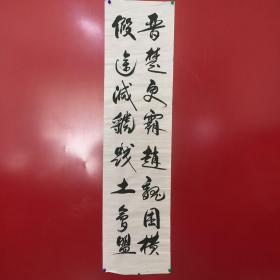 晋楚更霸趙魏困横
假途滅虢践土會盟